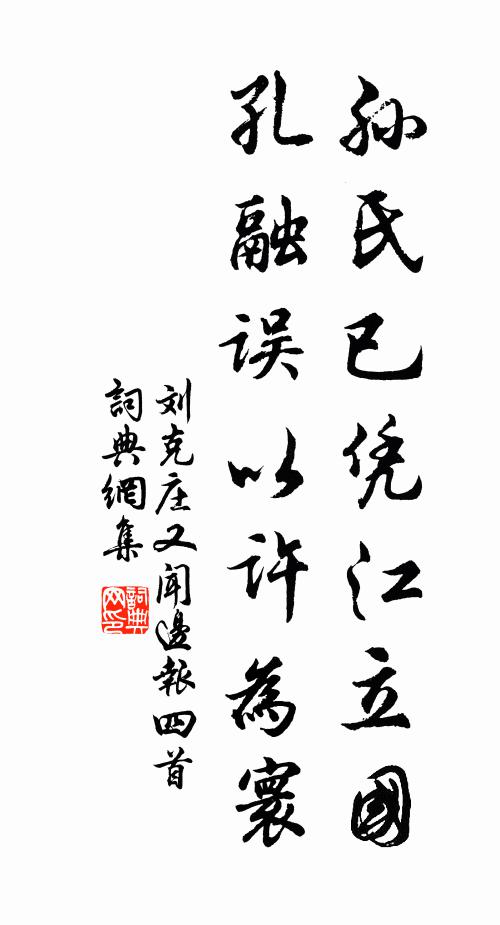 孙氏已凭江立國
孔融误以许為寰
刘克庄又闻邊報四首
詞典網集
詞典网印